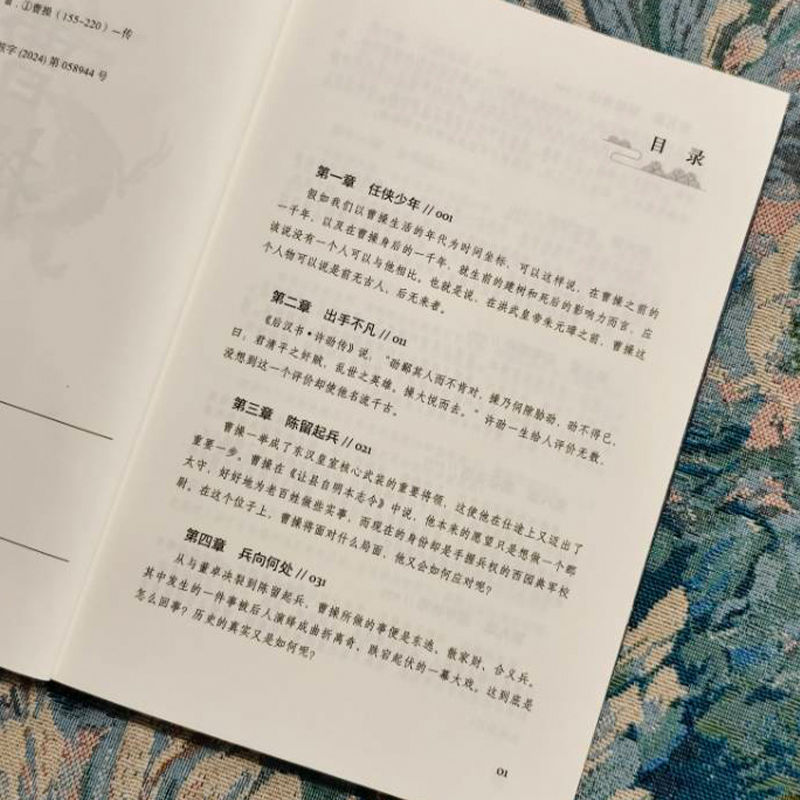 ①曹操（155-220）—传
字(2024)第 058944 号
目 录
第一章 任侠少年 // 001
假如我们以曹操生活的年代为时间坐标，可以这样说，在曹操之前的
一千年，以及在曹操身后的一千年，就生前的建树和死后的影响力而言，应
该说没有一个人可以与他相比。也就是说，在洪武皇帝朱元璋之前，曹操这
个人物可以说是前无古人、后无来者。
第二章 出手不凡 // 011
《后汉书·许劭传》说，“劭鄙其人而不肯对，操乃伺隙胁劭，劭不得已，
曰，君清平之奸贼，乱世之英雄。操大悦而去。”许劭一生给人评价无数，
没想到这一个评价却使他名流千古。
第三章 陈留起兵 // 021
曹操一举成了东汉皇室核心武装的重要将领，这使他在仕途上又迈出了
重要一步。曹操在《让县自明本志令》中说，他本来的愿望只是想做一个郡
太守，好好地为老百姓做些实事，而现在的身份却是手握兵权的西园典军校
尉。在这个位子上，曹操将面对什么局面，他又会如何应对呢？
第四章 兵向何处 // 031
从与董卓决裂到陈留起兵，曹操所做的事便是东逃、散家财、合义兵。
其中发生的一件事被后人演绎成曲折离奇、跌宕起伏的一幕大戏。这到底是
怎么回事？历史的真实又是如何呢？
01